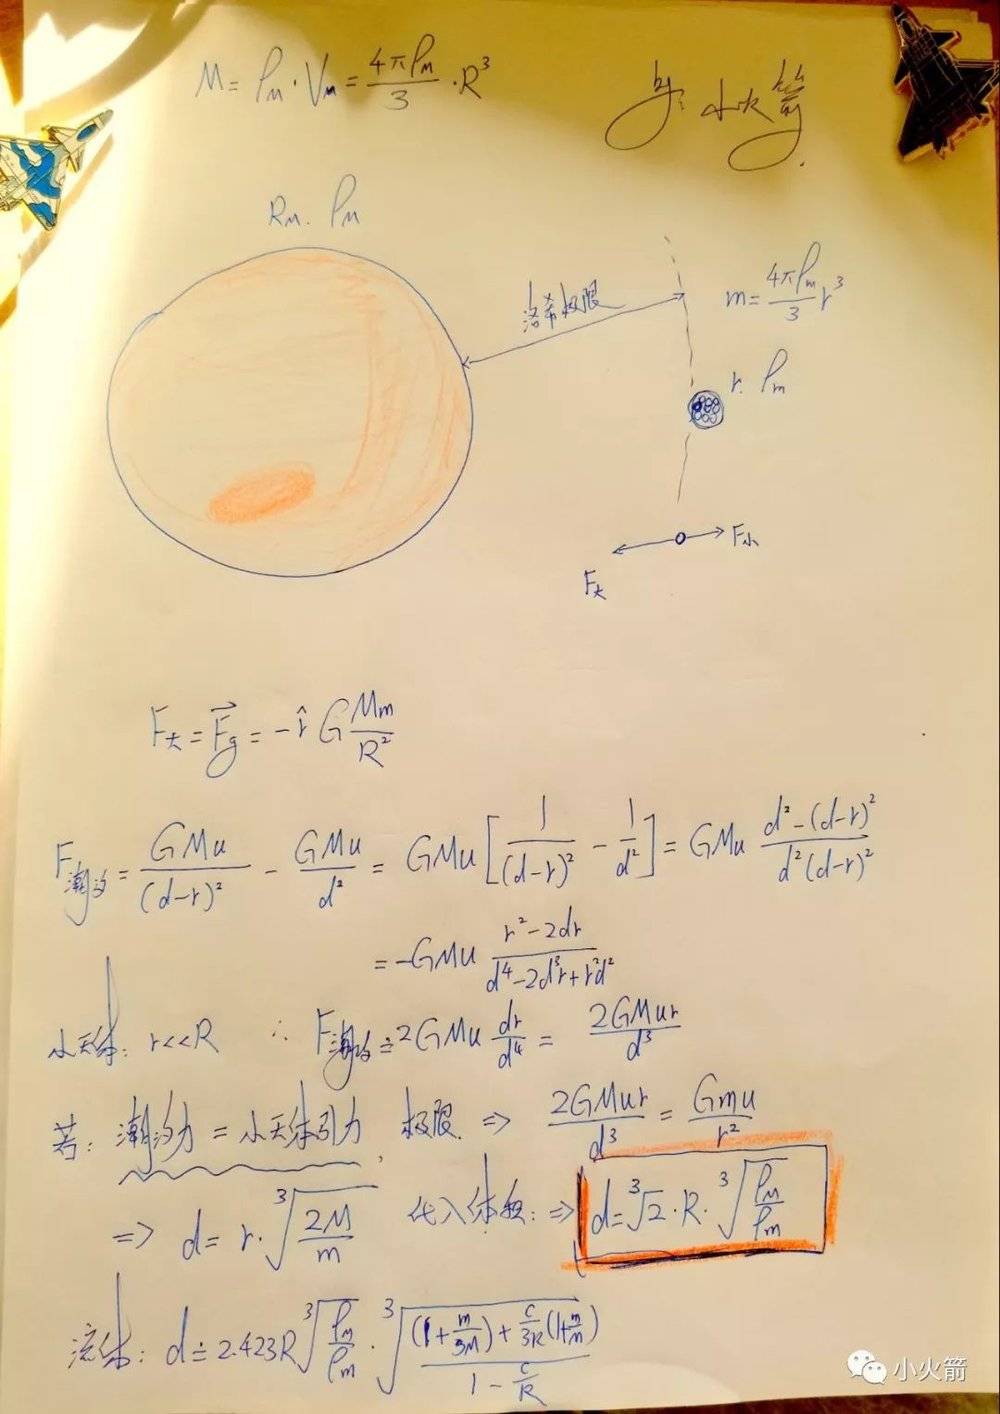 M = ρ_M · V_M = 4πρ_M/3 · R³
by: 小火箭
R_M. ρ_M
洛希极限
m = 4πρ_m/3 r³
r. ρ_m
F小
F大
F大 = F⃗_g = -r̂ G Mm/R²
F潮汐 = GMu/(d-r)² - GMu/d² = GMu [1/(d-r)² - 1/d²] = GMu d²-(d-r)²/d²(d-r)²
= -GMu r²-2dr/d⁴-2d³r+r²d²
小天体: r<<R ∴ F潮汐 ≐ 2GMu dr/d⁴ = 2GMur/d³
若: 潮汐力 = 小天体引力, 极限 => 2GMur/d³ = Gmu/r²
=> d = r · ³√(2M/m) 代入体积: => d = ³√2 · R · ³√(ρ_M/ρ_m)
流体: d ≐ 2.423R ³√(ρ_M/ρ_m) · ³√((1+m/3M)+c/3R(1+m/M)/1-c/R)
小火箭